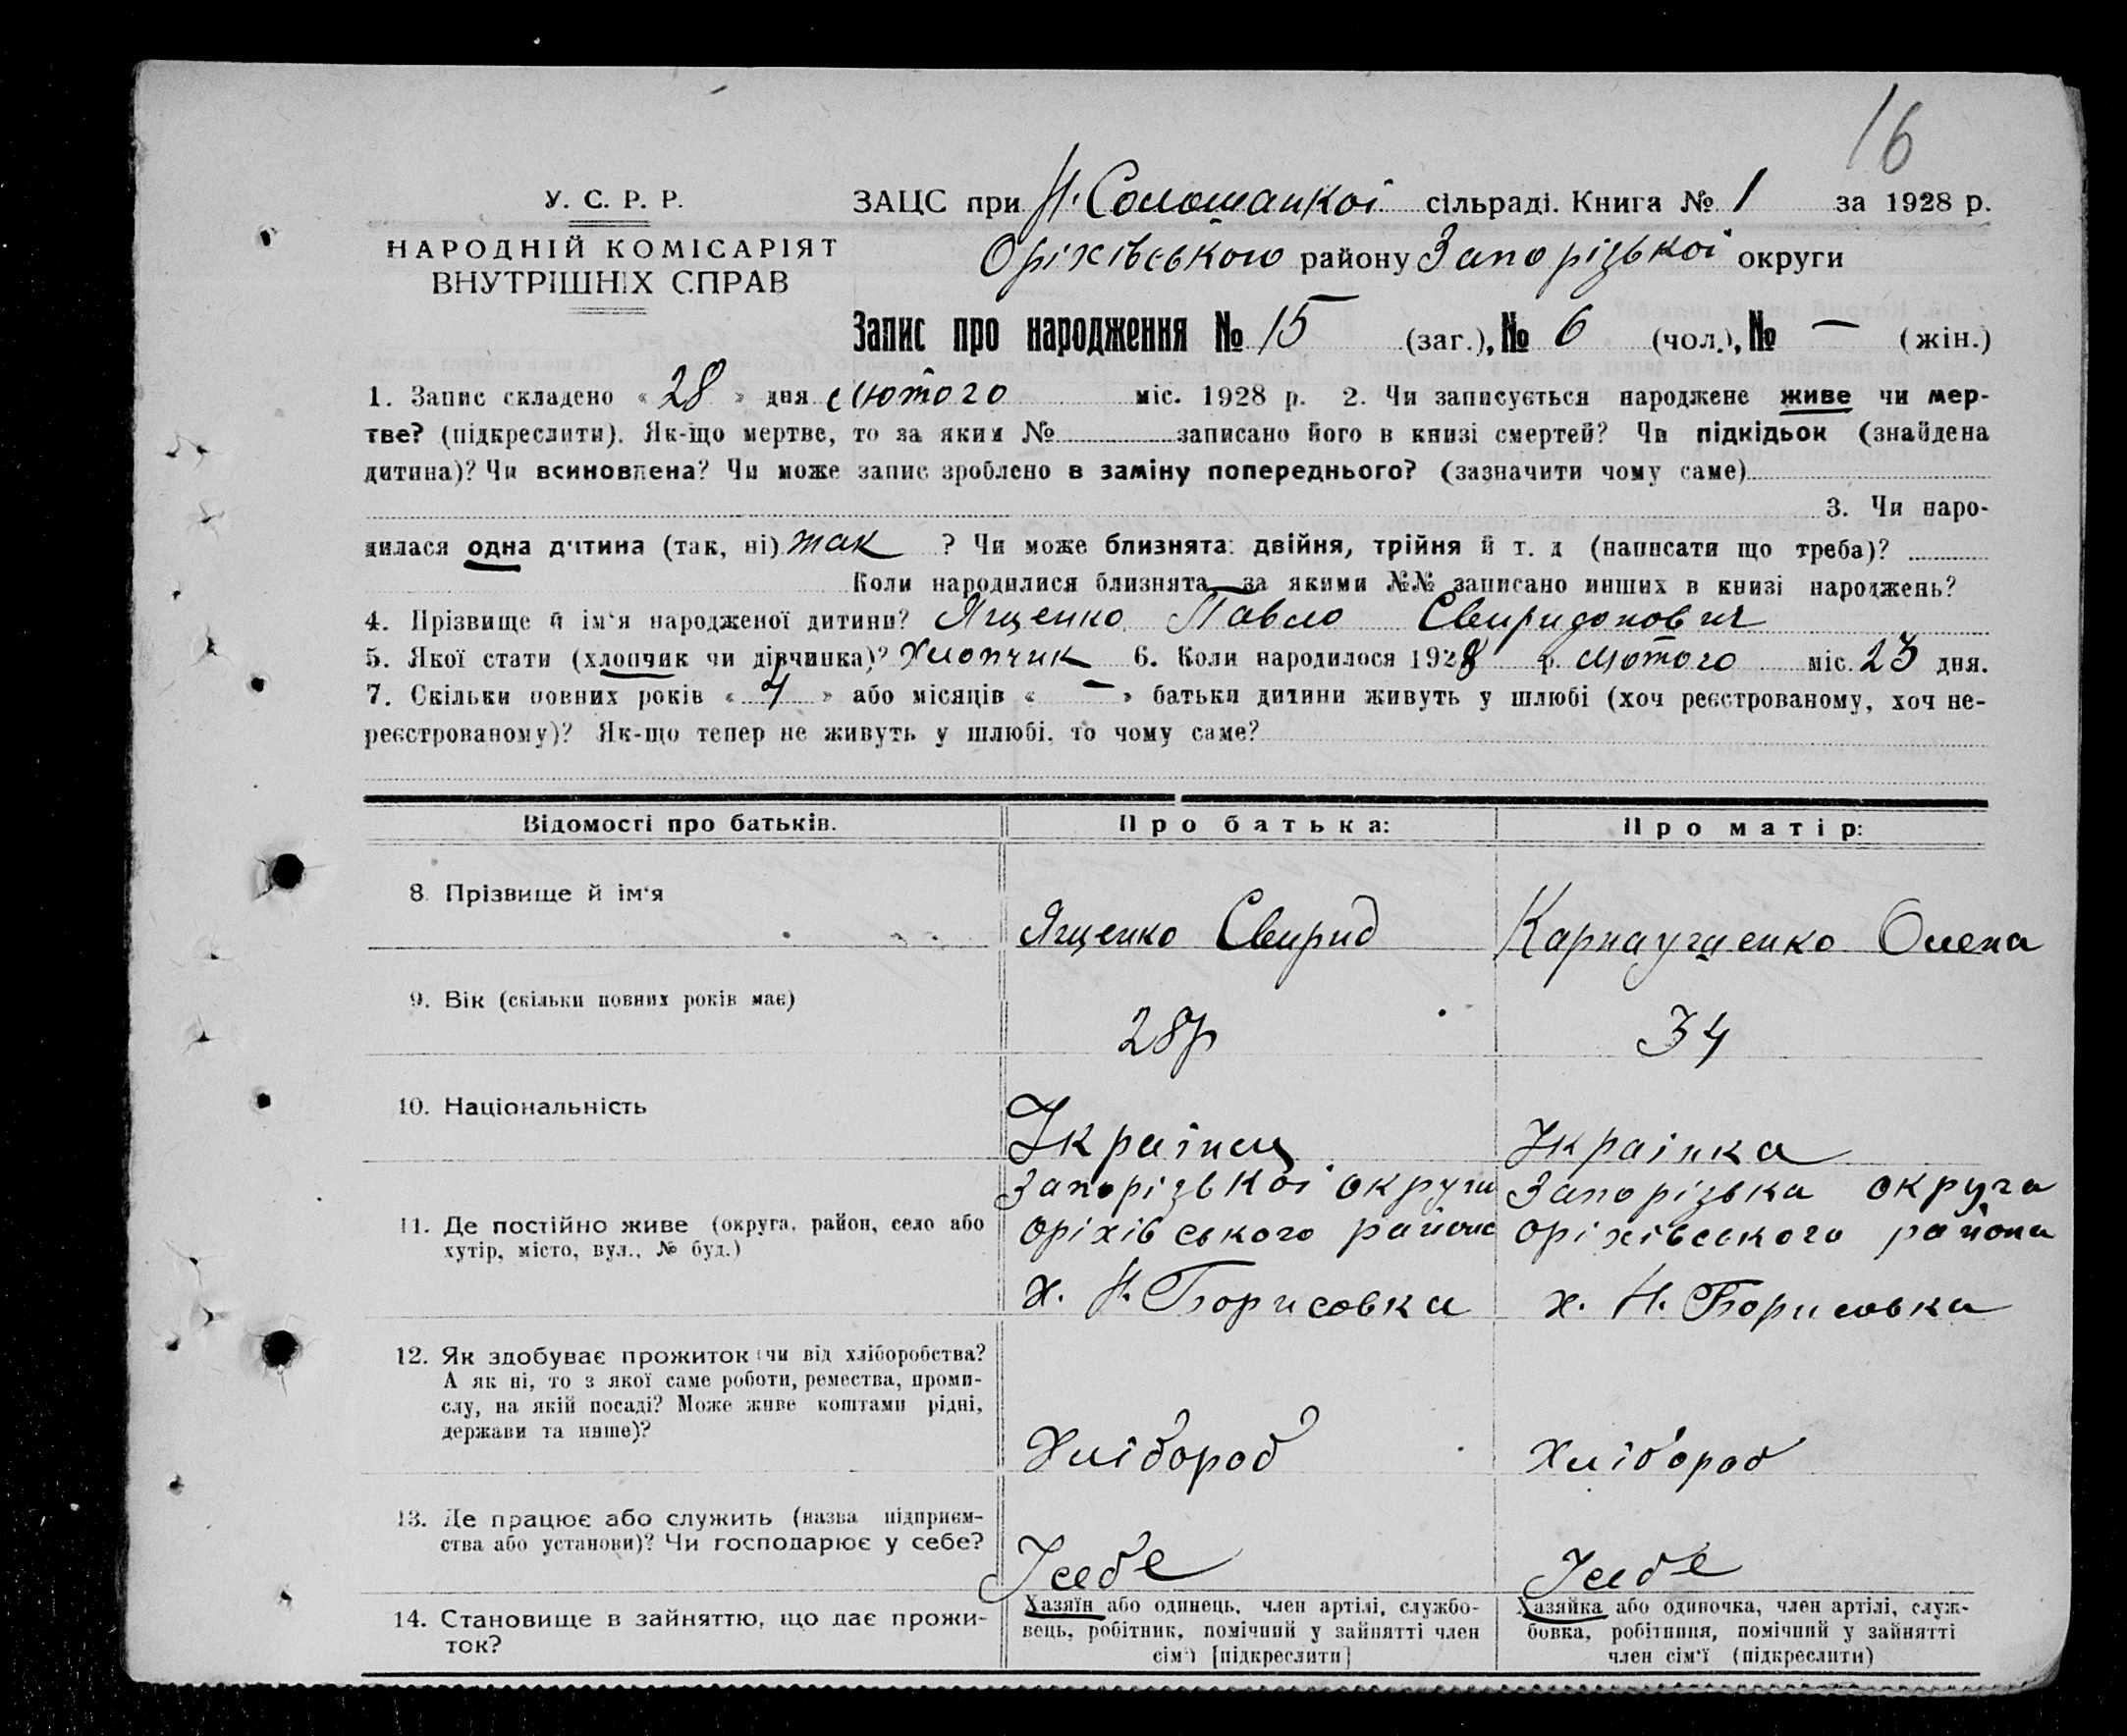 16
У. С. Р. Р.
НАРОДНІЙ КОМІСАРІЯТ
ВНУТРІШНІХ СПРАВ
ЗАЦС при Н. Солошанкої сільраді. Книга № 1 за 1928 р.
Оріхівського району Запорізької округи
Запис про народження № 15 (заг.), № 6 (чол.), № — (жін.)
1. Запис складено « 28 » дня лютого міс. 1928 р. 2. Чи записується народжене живе чи мер-
тве? (підкреслити). Як-що мертве, то за яким № записано його в книзі смертей? Чи підкідьок (знайдена
дитина)? Чи всиновлена? Чи може запис зроблено в заміну попереднього? (зазначити чому саме)
3. Чи наро-
дилася одна дитина (так, ні) так ? Чи може близнята: двійня, трійня й т. д (написати що треба)?
Коли народилися близнята за якими №№ записано инших в книзі народжень?
4. Прізвище й ім'я народженої дитини? Ященко Павло Свиридонович
5. Якої стати (хлопчик чи дівчинка)? Хлопчик 6. Коли народилося 1928 р. лютого міс. 23 дня.
7. Скільки повних років « 4 » або місяців « — » батьки дитини живуть у шлюбі (хоч реєстрованому, хоч не-
реєстрованому)? Як-що тепер не живуть у шлюбі, то чому саме?
Відомості про батьків. Про батька: Про матір:
8. Прізвище й ім'я Ященко Свирид Карнаущенко Олена
9. Вік (скільки повних років має) 28р 34
10. Національність Українец Українка
11. Де постійно живе (округа, район, село або
хутір, місто, вул., № буд.)
Запорізької округи
Оріхівського района
х. Н. Борисовка
Запорізька округа
Оріхівського района
х. Н. Борисовка
12. Як здобуває прожиток (чи від хліборобства?
А як ні, то з якої саме роботи, ремества, проми-
слу, на якій посаді? Може живе коштами рідні,
держави та инше)?
Хлібороб Хлібороб
13. Де працює або служить (назва підприєм-
ства або установи)? Чи господарює у себе?
У себе У себе
14. Становище в зайняттю, що дає прожи-
ток?
Хазяїн або одинець, член артілі, службо-
вець, робітник, помічний у зайнятті член
сім'ї [підкреслити]
Хазяйка або одиночка, член артілі, служ-
бовка, робітниця, помічний у зайнятті
член сім'ї (підкреслити)